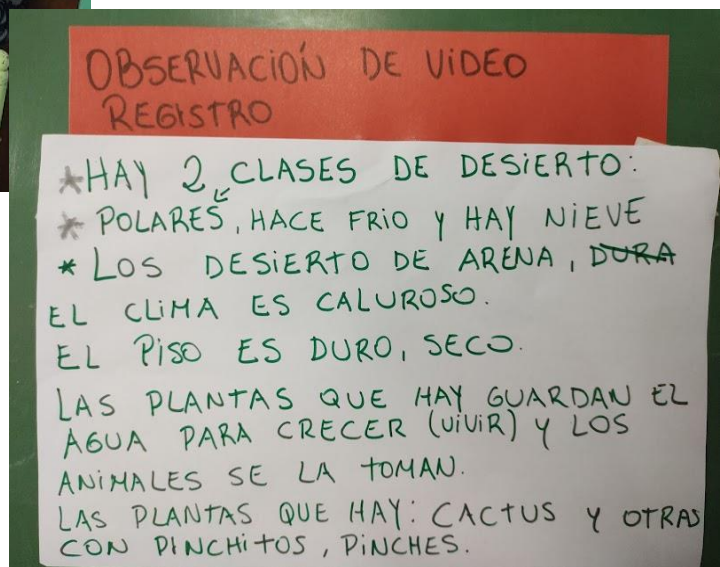 OBSERVACIÓN DE VIDEO
REGISTRO
*HAY 2 CLASES DE DESIERTO:
* POLARES, HACE FRIO Y HAY NIEVE
* LOS DESIERTO DE ARENA, DURA
EL CLIMA ES CALUROSO.
EL PISO ES DURO, SECO.
LAS PLANTAS QUE HAY GUARDAN EL
AGUA PARA CRECER (VIVIR) Y LOS
ANIMALES SE LA TOMAN.
LAS PLANTAS QUE HAY: CACTUS Y OTRAS
CON PINCHITOS, PINCHES.